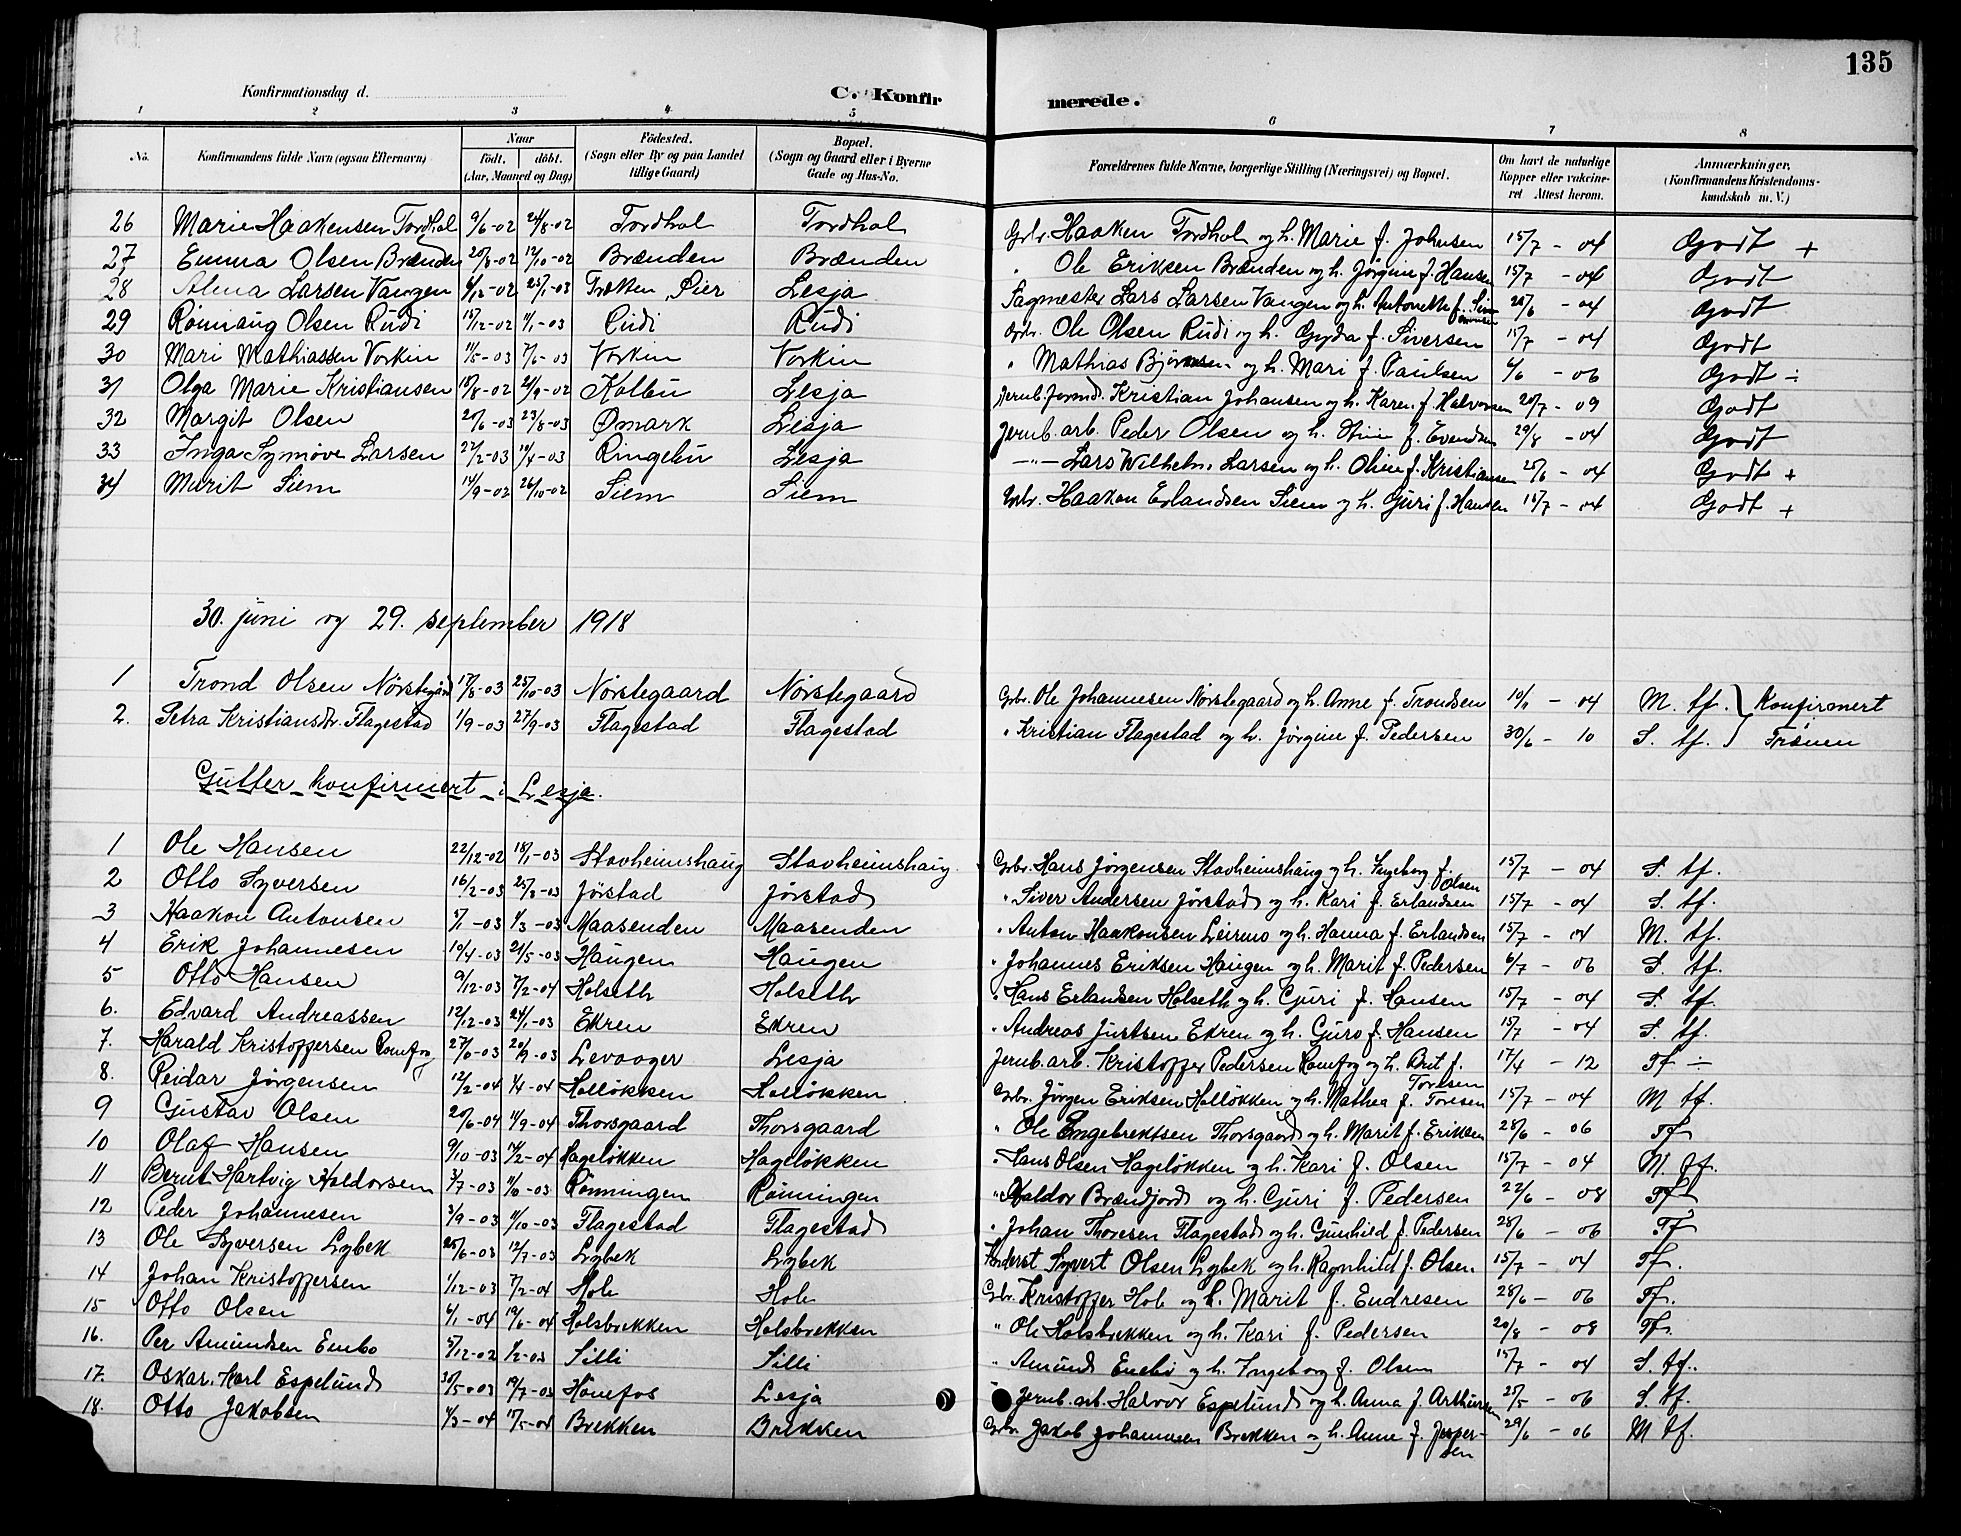 135
Konfirmationsdag d.
C. Konfirmerede.
1 2 3 4 5 6 7 8
No. Konfirmandens fulde Navn (ogsaa Efternavn) Naar født. døbt. (Aar, Maaned og Dag) Födested. (Sogn eller By og paa Landet tillige Gaard) Bopæl. (Sogn og Gaard eller i Byerne Gade og Hus-No. Forældrenes fulde Navne, borgerlige Stilling (Næringsvei) og Bopæl. Om havt de naturlige Kopper eller vakcineret Attest herom. Anmærkninger, (Konfirmandens Kristendomskundskab m. V.)
26 Marie Haakensen Tordhol 9/6-02 24/8-02 Tordhol Tordhol Grbr. Haaken Tordhol og h. Marie f. Johnsen 15/7 - 04 Godt +
27 Emma Olsen Brænden 20/8-02 12/10-02 Brænden Brænden " Ole Eriksen Brænden og h. Jørgine f. Hansen 15/7 - 04 Godt
28 Alma Larsen Vangen /12-02 25/1-03 Lesja Sagmester Lars Larsen Vangen og h. Antonette f. Simonsen 28/6 - 04 Godt
29 Rønnaug Olsen Rudi 15/12-02 11/1-03 Rudi Rudi Grbr. Ole Olsen Rudi og h. Gyda f. Siversen 15/7 - 04 Godt
30 Mari Mathiassen Vorkin 11/5-03 7/6-03 Vorkin Vorkin " Mathias Bjørnsen og h. Mari f. Paulsen 6/6 - 06 Godt ÷
31 Olga Marie Kristiansen 18/8-02 21/9-02 Kolbu Lesja Jernb.formd. Kristian Johansen og h. Karen f. Halvorsen 20/7 - 09 Godt
32 Margit Olsen 20/6-03 23/8-03 Ømark Lesja Jernb. arb. Peder Olsen og h. Stine f. Evensen 29/8 - 04 Godt
33 Inga Synnøve Larsen 22/2-03 19/4-03 Ringebu Lesja —"— Lars Wilhelm Larsen og h. Oline f. Kristiansen 28/6 - 04 Godt +
34 Marit Siem 14/9-02 26/10-02 Siem Siem Grbr. Haakon Erlandsen Siem og h. Guri f. Hansen 15/7 - 04 Godt +
30. juni og 29. september 1918
1 Trond Olsen Nørstegård 17/8-03 25/10-03 Nørstegaard Nørstegaard Grbr. Ole Johannesen Nørstegaard og h. Anne f. Trondsen 10/1 - 04 M. tf. } Konfirmert
2. Petra Kristiansdr. Flagestad 1/9-03 27/9-03 Flagestad Flagestad " Kristian Flagestad og h. Jørgine f. Pedersen 30/6 - 10 S. tf. } Trønen
Gutter konfirmert i Lesja.
1 Ole Hansen 22/12-02 18/1-03 Stavheimshaug Stavheimshaug Grbr. Hans Jørgensen Stavheimshaug og h. Ingeborg f. Olsen 15/7 - 04 S. tf.
2 Otto Syversen 16/2-03 25/3-03 Jørstad Jørstad " Siver Andersen Jørstad og h. Kari f. Erlandsen 15/7 - 04 S. tf.
3 Haakon Antonsen /1-03 1/3-03 Maasenden Maasenden " Anton Haakonsen Leirmo og h. Hanna f. Erlandsen 15/7 - 04 M. tf.
4 Erik Johannesen 19/4-03 21/5-03 Haugen Haugen " Johannes Eriksen Haugen og h. Marit f. Pedersen 6/7 - 06 S. tf.
5 Otto Hansen 9/12-03 7/2-04 Holseth Holseth " Hans Erlandsen Holseth og h. Guri f. Hansen 15/7 - 04 S. tf.
6. Edvard Andreassen 12/12-03 24/1-03 Ekren Ekren " Andreas Justsen Ekren og h. Guro f. Hansen 15/7 - 04 S. tf.
7. Harald Kristoffersen Romfog 27/6-03 20/9-03 Levanger Lesja Jernb. arb. Kristoffer Pedersen Romfog og h. Brit f. Toresen 17/4 - 12 Tf ÷
8. Reidar Jørgensen 12/2-04 4/4-04 Holløkken Holløkken Grbr. Jørgen Eriksen Holløkken og h. Mathea f. Toresen 15/7 - 04 M tf.
9 Gustav Olsen 20/6-04 11/9-04 Thorsgaard Thorsgaard " Ole Engebrektsen Thorsgaard og h. Marit f. Eriksen 28/6 - 06 Tf
10 Olaf Hansen 9/10-03 14/2-04 Hageløkken Hageløkken " Hans Olsen Hageløkken og h. Kari f. Olsen 15/7 - 04 M. tf.
11 Bernt Hartvig Haldorsen 3/7-03 11/10-03 Rønningen Rønningen " Haldor Brændjord og h. Guri f. Pedersen 22/6 - 08 Tf
12 Peder Johannesen 3/9-03 11/10-03 Flagestad Flagestad " Johan Thoresen Flagestad og h. Gunhild f. Pedersen 28/6 - 06 Tf
13 Ole Syversen Lybek 25/6-03 12/7-03 Lybek Lybek Inderst Syvert Olsen Lybek og h. Ragnhild f. Olsen 15/7 - 04 Tf.
14 Johan Kristoffersen 1/12-03 7/2-04 Hole Hole Grbr. Kristoffer Hole og h. Marit f. Endresen 28/6 - 06 Tf.
15 Otto Olsen 6/1-04 19/6-04 Holsbrekken Holsbrekken " Ole Holsbrekken og h. Kari f. Pedersen 20/8 - 08 Tf.
16. Per Amundsen Enebo 5/12-02 1/2-03 Silli Silli " Amund Enebo og h. Ingeborg f. Olsen 15/7 - 04 S. tf.
17. Oskar Karl Espelund 30/5-03 19/7-03 Hønefos Lesja Jernb. arb. Halvor Espelund og h. Anna f. Arthursen 25/5 - 06 S. tf.
18. Otto Jakobsen 4/3-04 15/5-04 Brekken Brekken Grbr. Jakob Johannesen Brekken og h. Anne f. Jespersen 29/6 - 06 M tf.